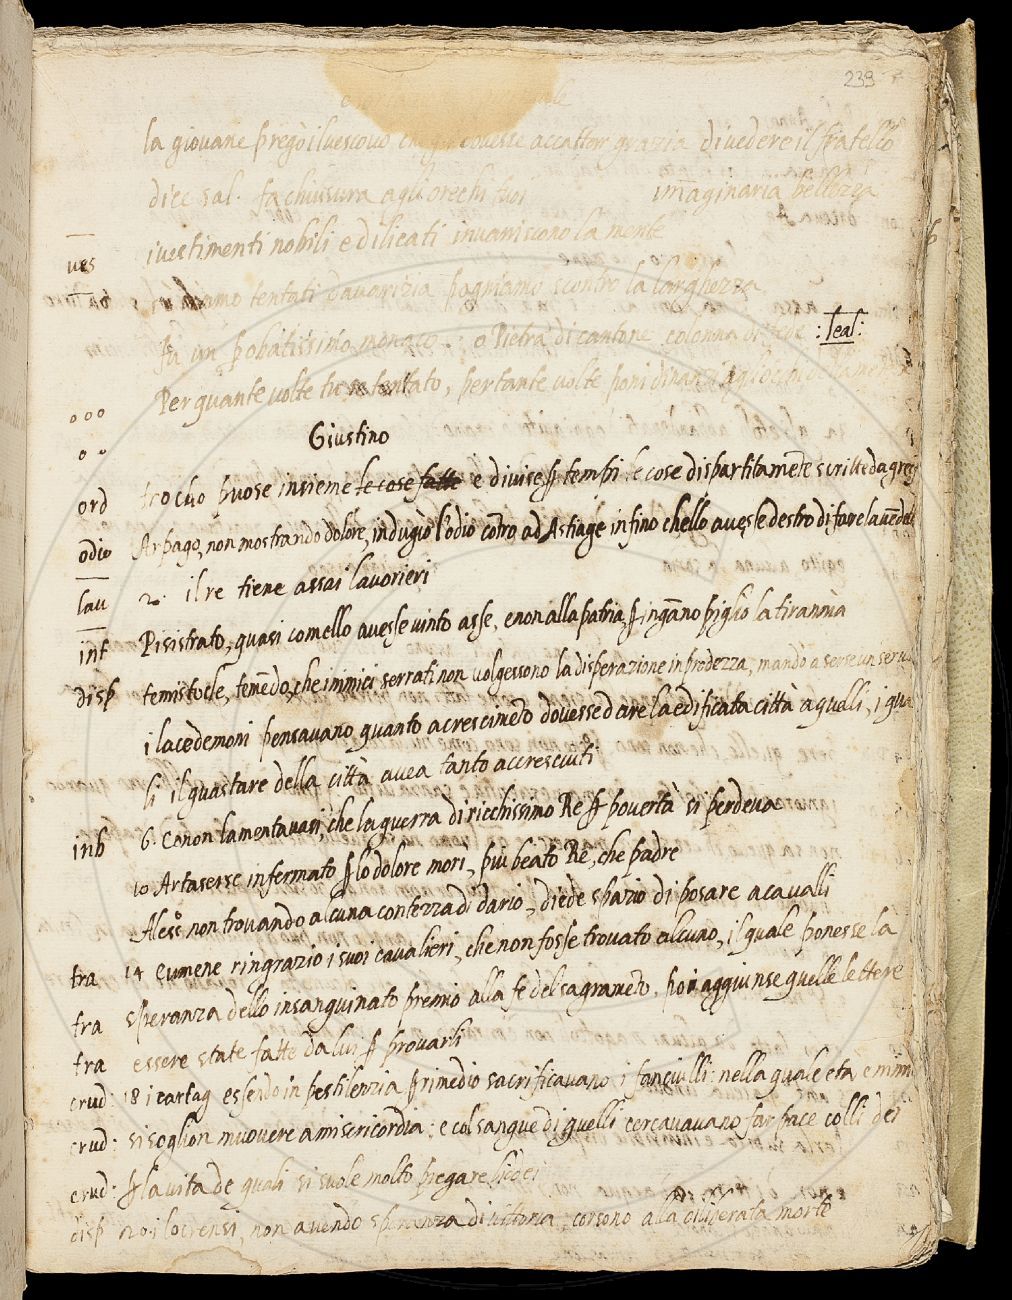 239
la giovane pregò il vescovo che gli dovesse accattar grazia di vedere il fratello
diec sal. fa chiusura agli orecchi tuoi imaginaria bellezza
ves i vestimenti nobili e dilicati invaniscono la mente
siamo tentati d'avarizia pogniamo scontro la larghezza
fu un probatissimo monaco. o Pietra di cantone colonna di fede :leal:
Per quante volte tu se tentato, per tante volte poni dinanzi agli occhi
Giustino
ord trocho puose insieme le cose fatte e divise p tempi : le cose dispartitamẽte scritte da greci
odio Arpago, non mostrando dolore, indugiò l'odio cõtro ad Astiage infino chello avesse destro di fare la vẽdetta
lau 2. il re tiene assai lavorieri
inf Pisistrato, quasi comello avesse vinto asse, e non alla patria, p ingãno piglio la tirannia
disp temistocle, temẽdo che inimici serrati non volgessono la disperazione in prodezza, mando a serse un servo
i lacedemoni pensavano quanto acrescimẽto dovesse dare la edificata città a quelli, i qua
li il guastare della città avea tanto accresciuti
inb 6. Conon lamentavasi, che la guerra di ricchissimo Re p povertà si perdeva
10 Artaserse infermato p lo dolore mori, più beato Re, che padre
Aless. non trovando alcuna contezza di dario, diede spazio di posare a cavalli
fra 14 Eumene ringrazio i suoi cavalieri, che non fosse trovato alcuno, il quale ponesse la
fra speranza dello insanguinato premio alla fe del sagramẽto. poi aggiunse quelle lettere
fra essere state fatte da lui p provarli
crud: 18 i cartag essendo in pestilenzia p rimedio sacrificavano i fanciulli: nella quale eta e nimici
crud: si soglion muovere a misericordia: e col sangue di quelli cercavano far pace colli dei
crud: p la vita de quali si suole molto pregare li dei
disp 20. i locrensi, non avendo speranza di vittoria, corsono alla diliberata morte